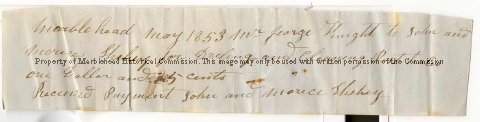 Marblehead May 1853 Mr George Knight to John and
Morice Shehey for
Property of Marblehead Historical Commission. This image may only be used with written permission of the Commission
one Dollar and cents
Received Payment John and Morice Shehey